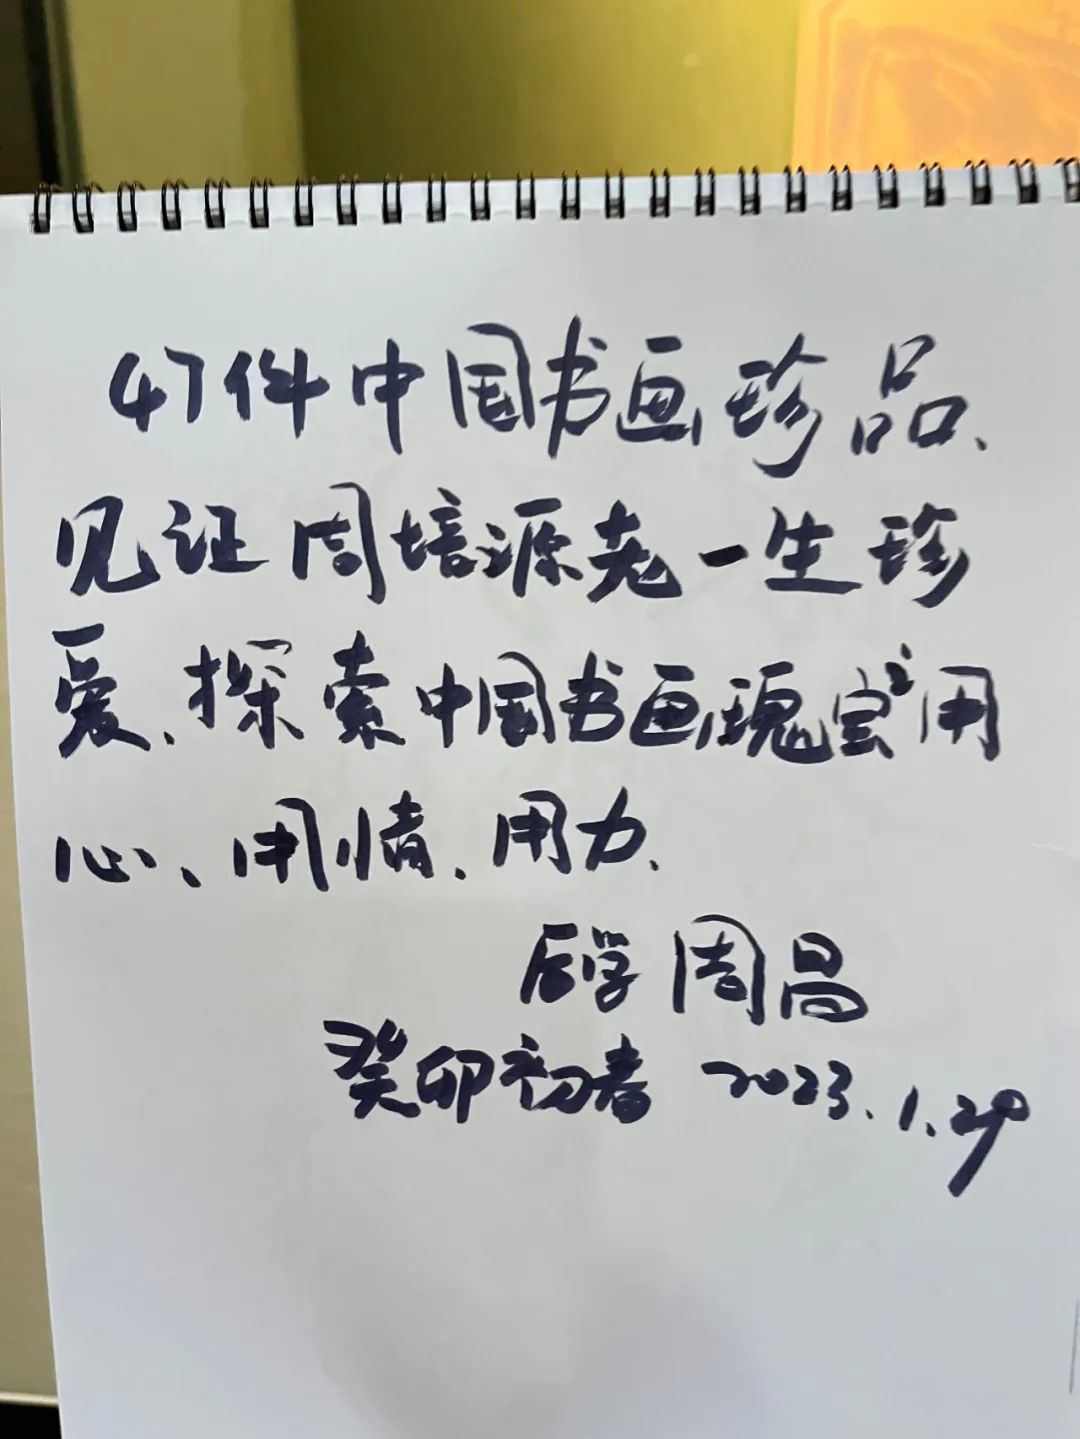 47件中国书画珍品、
见证周培源老一生珍
爱、探索中国书画瑰宝之用
心、用情、用力、
后学周昌
癸卯初春 2023.1.29